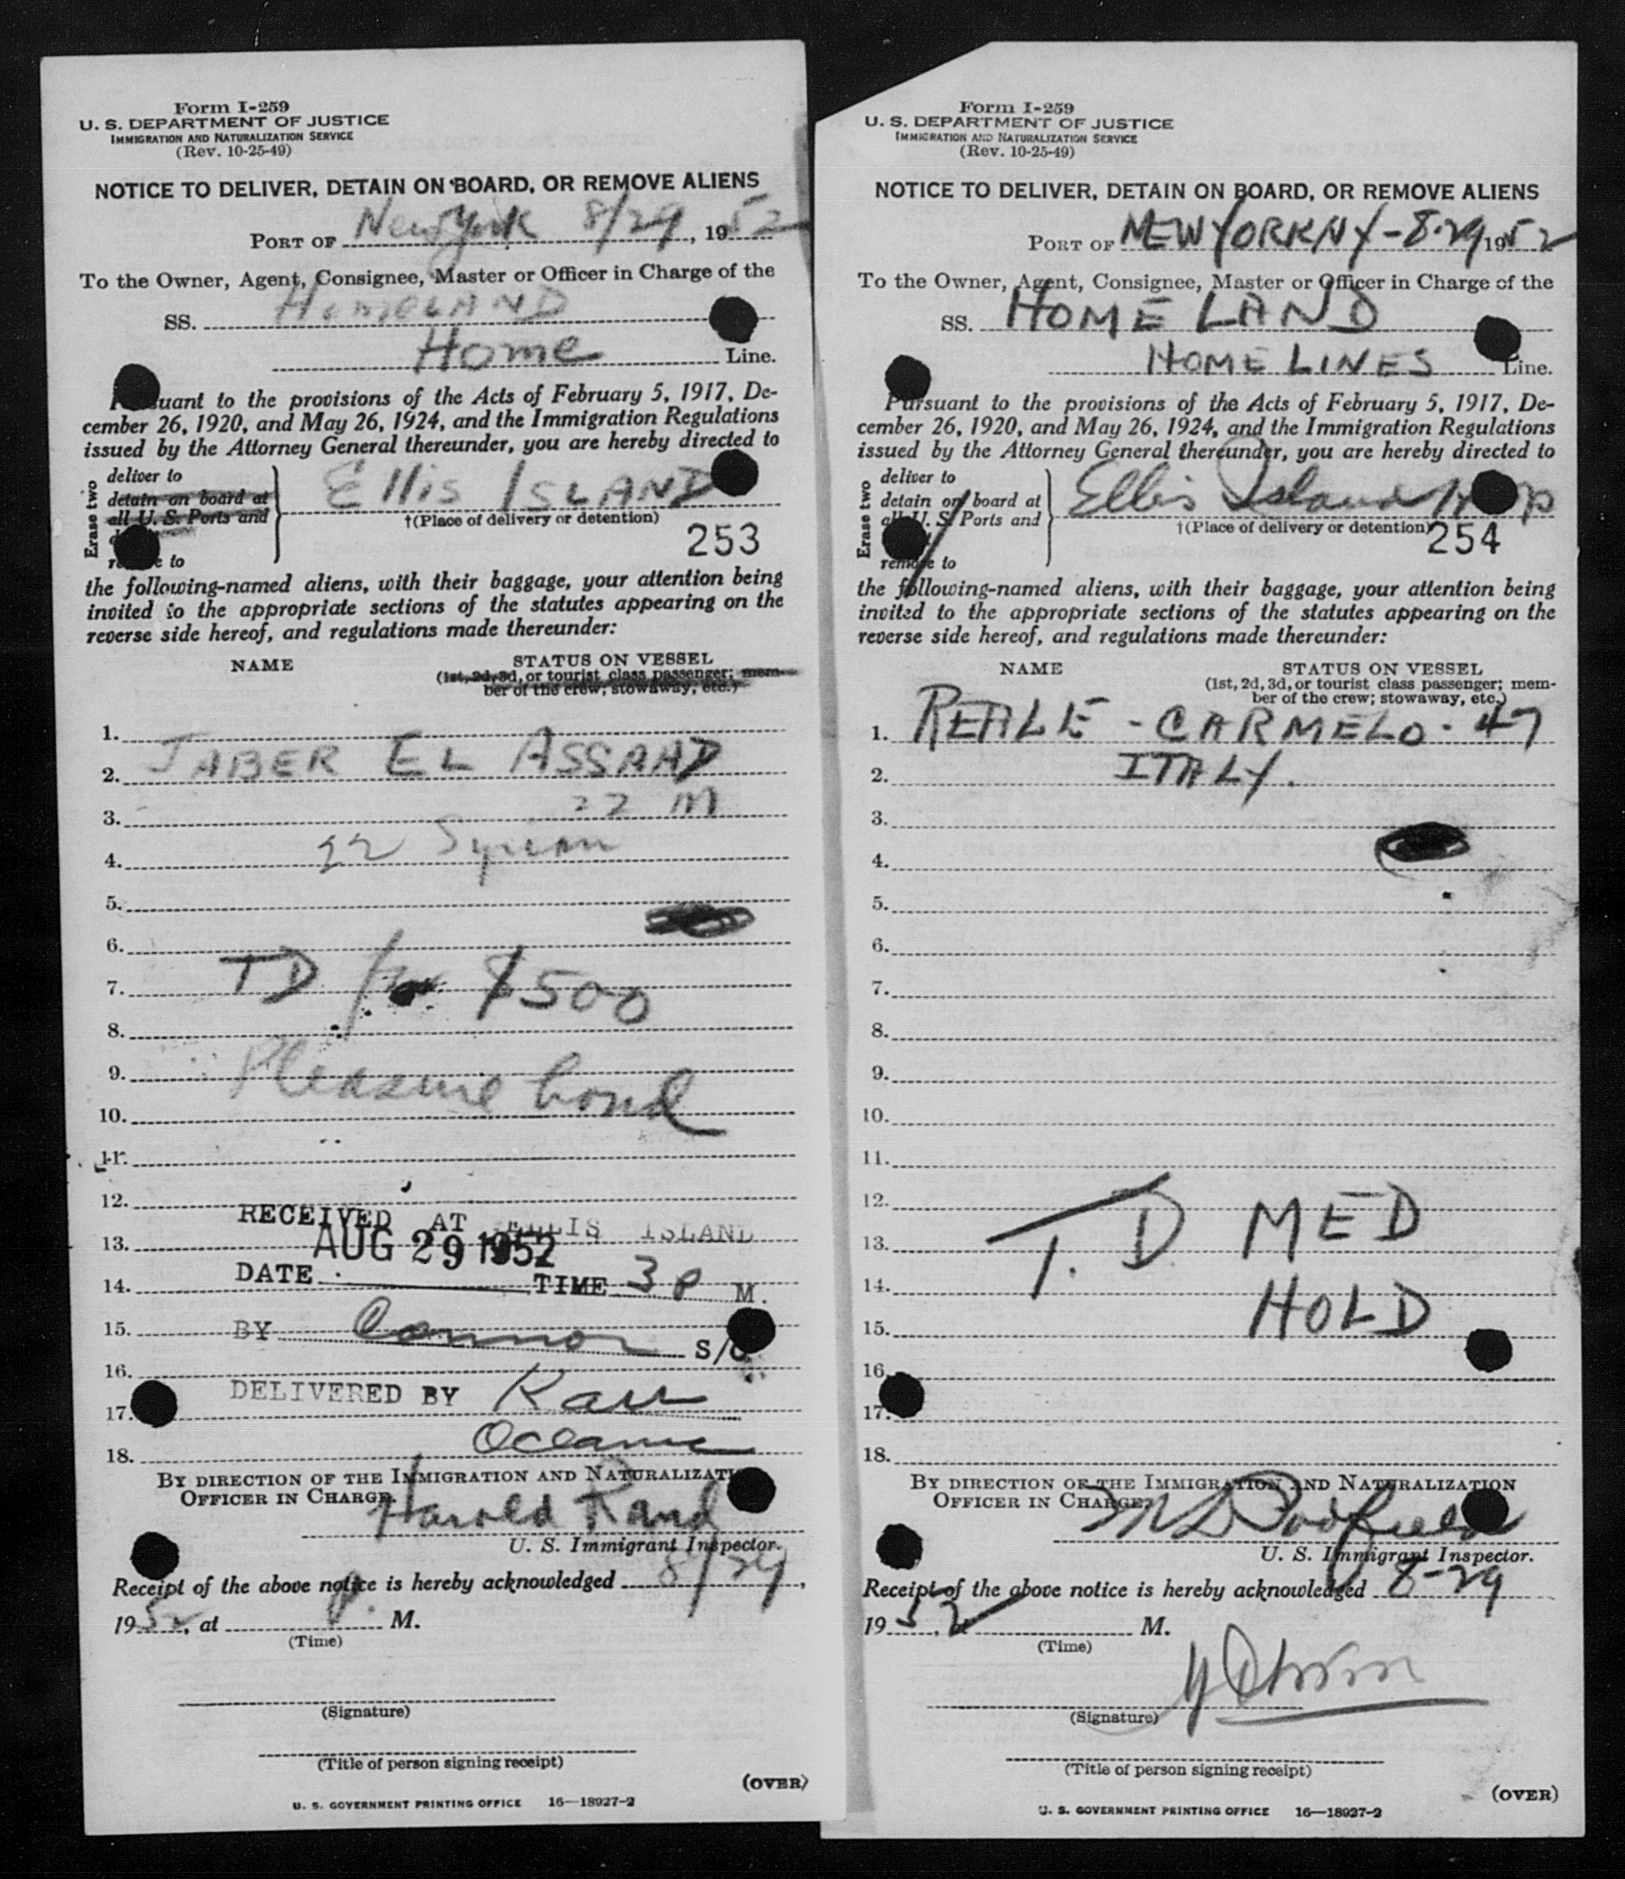 Form I-259
U. S. DEPARTMENT OF JUSTICE
IMMIGRATION AND NATURALIZATION SERVICE
(Rev. 10-25-49)
NOTICE TO DELIVER, DETAIN ON BOARD, OR REMOVE ALIENS
PORT OF New York 8/29, 1952
To the Owner, Agent, Consignee, Master or Officer in Charge of the
SS. HOMELAND
Home Line.
Pursuant to the provisions of the Acts of February 5, 1917, De-
cember 26, 1920, and May 26, 1924, and the Immigration Regulations
issued by the Attorney General thereunder, you are hereby directed to
Erase two
deliver to
detain on board at
all U. S. Ports and
remove to
Ellis ISLAND
†(Place of delivery or detention)
253
the following-named aliens, with their baggage, your attention being
invited to the appropriate sections of the statutes appearing on the
reverse side hereof, and regulations made thereunder:
NAME STATUS ON VESSEL
(1st, 2d, 3d, or tourist class passenger; mem-
ber of the crew; stowaway, etc.)
1.
2. JABER EL ASSAAD
3. 22 M
4. 22 Syrian
5.
6.
7. TD $500
8.
9. Pleasure bond
10.
11.
12.
RECEIVED AT ELLIS ISLAND
13. AUG 29 1952
14. DATE TIME 3 P M.
15. BY Connor S/
16.
DELIVERED BY Karr
17.
Oceanic
18.
BY DIRECTION OF THE IMMIGRATION AND NATURALIZATION
OFFICER IN CHARGE.
Harold Rand
U. S. Immigrant Inspector.
Receipt of the above notice is hereby acknowledged 8/29,
1952, at P. M.
(Time)
(Signature)
(Title of person signing receipt)
(OVER)
U. S. GOVERNMENT PRINTING OFFICE 16—18927-2
Form I-259
U. S. DEPARTMENT OF JUSTICE
IMMIGRATION AND NATURALIZATION SERVICE
(Rev. 10-25-49)
NOTICE TO DELIVER, DETAIN ON BOARD, OR REMOVE ALIENS
PORT OF NEW YORK NY - 8-29 1952
To the Owner, Agent, Consignee, Master or Officer in Charge of the
SS. HOME LAND
HOME LINES Line.
Pursuant to the provisions of the Acts of February 5, 1917, De-
cember 26, 1920, and May 26, 1924, and the Immigration Regulations
issued by the Attorney General thereunder, you are hereby directed to
Erase two
deliver to
detain on board at
all U. S. Ports and
remove to
Ellis Island Hosp
†(Place of delivery or detention)
254
the following-named aliens, with their baggage, your attention being
invited to the appropriate sections of the statutes appearing on the
reverse side hereof, and regulations made thereunder:
NAME STATUS ON VESSEL
(1st, 2d, 3d, or tourist class passenger; mem-
ber of the crew; stowaway, etc.)
1. REALE - CARMELO - 47
2. ITALY.
3.
4.
5.
6.
7.
8.
9.
10.
11.
12.
13. T. D. MED
14.
15. HOLD
16.
17.
18.
BY DIRECTION OF THE IMMIGRATION AND NATURALIZATION
OFFICER IN CHARGE.
U. S. Immigrant Inspector.
Receipt of the above notice is hereby acknowledged 8-29
1952, at M.
(Time)
(Signature)
(Title of person signing receipt)
(OVER)
U. S. GOVERNMENT PRINTING OFFICE 16—18927-2